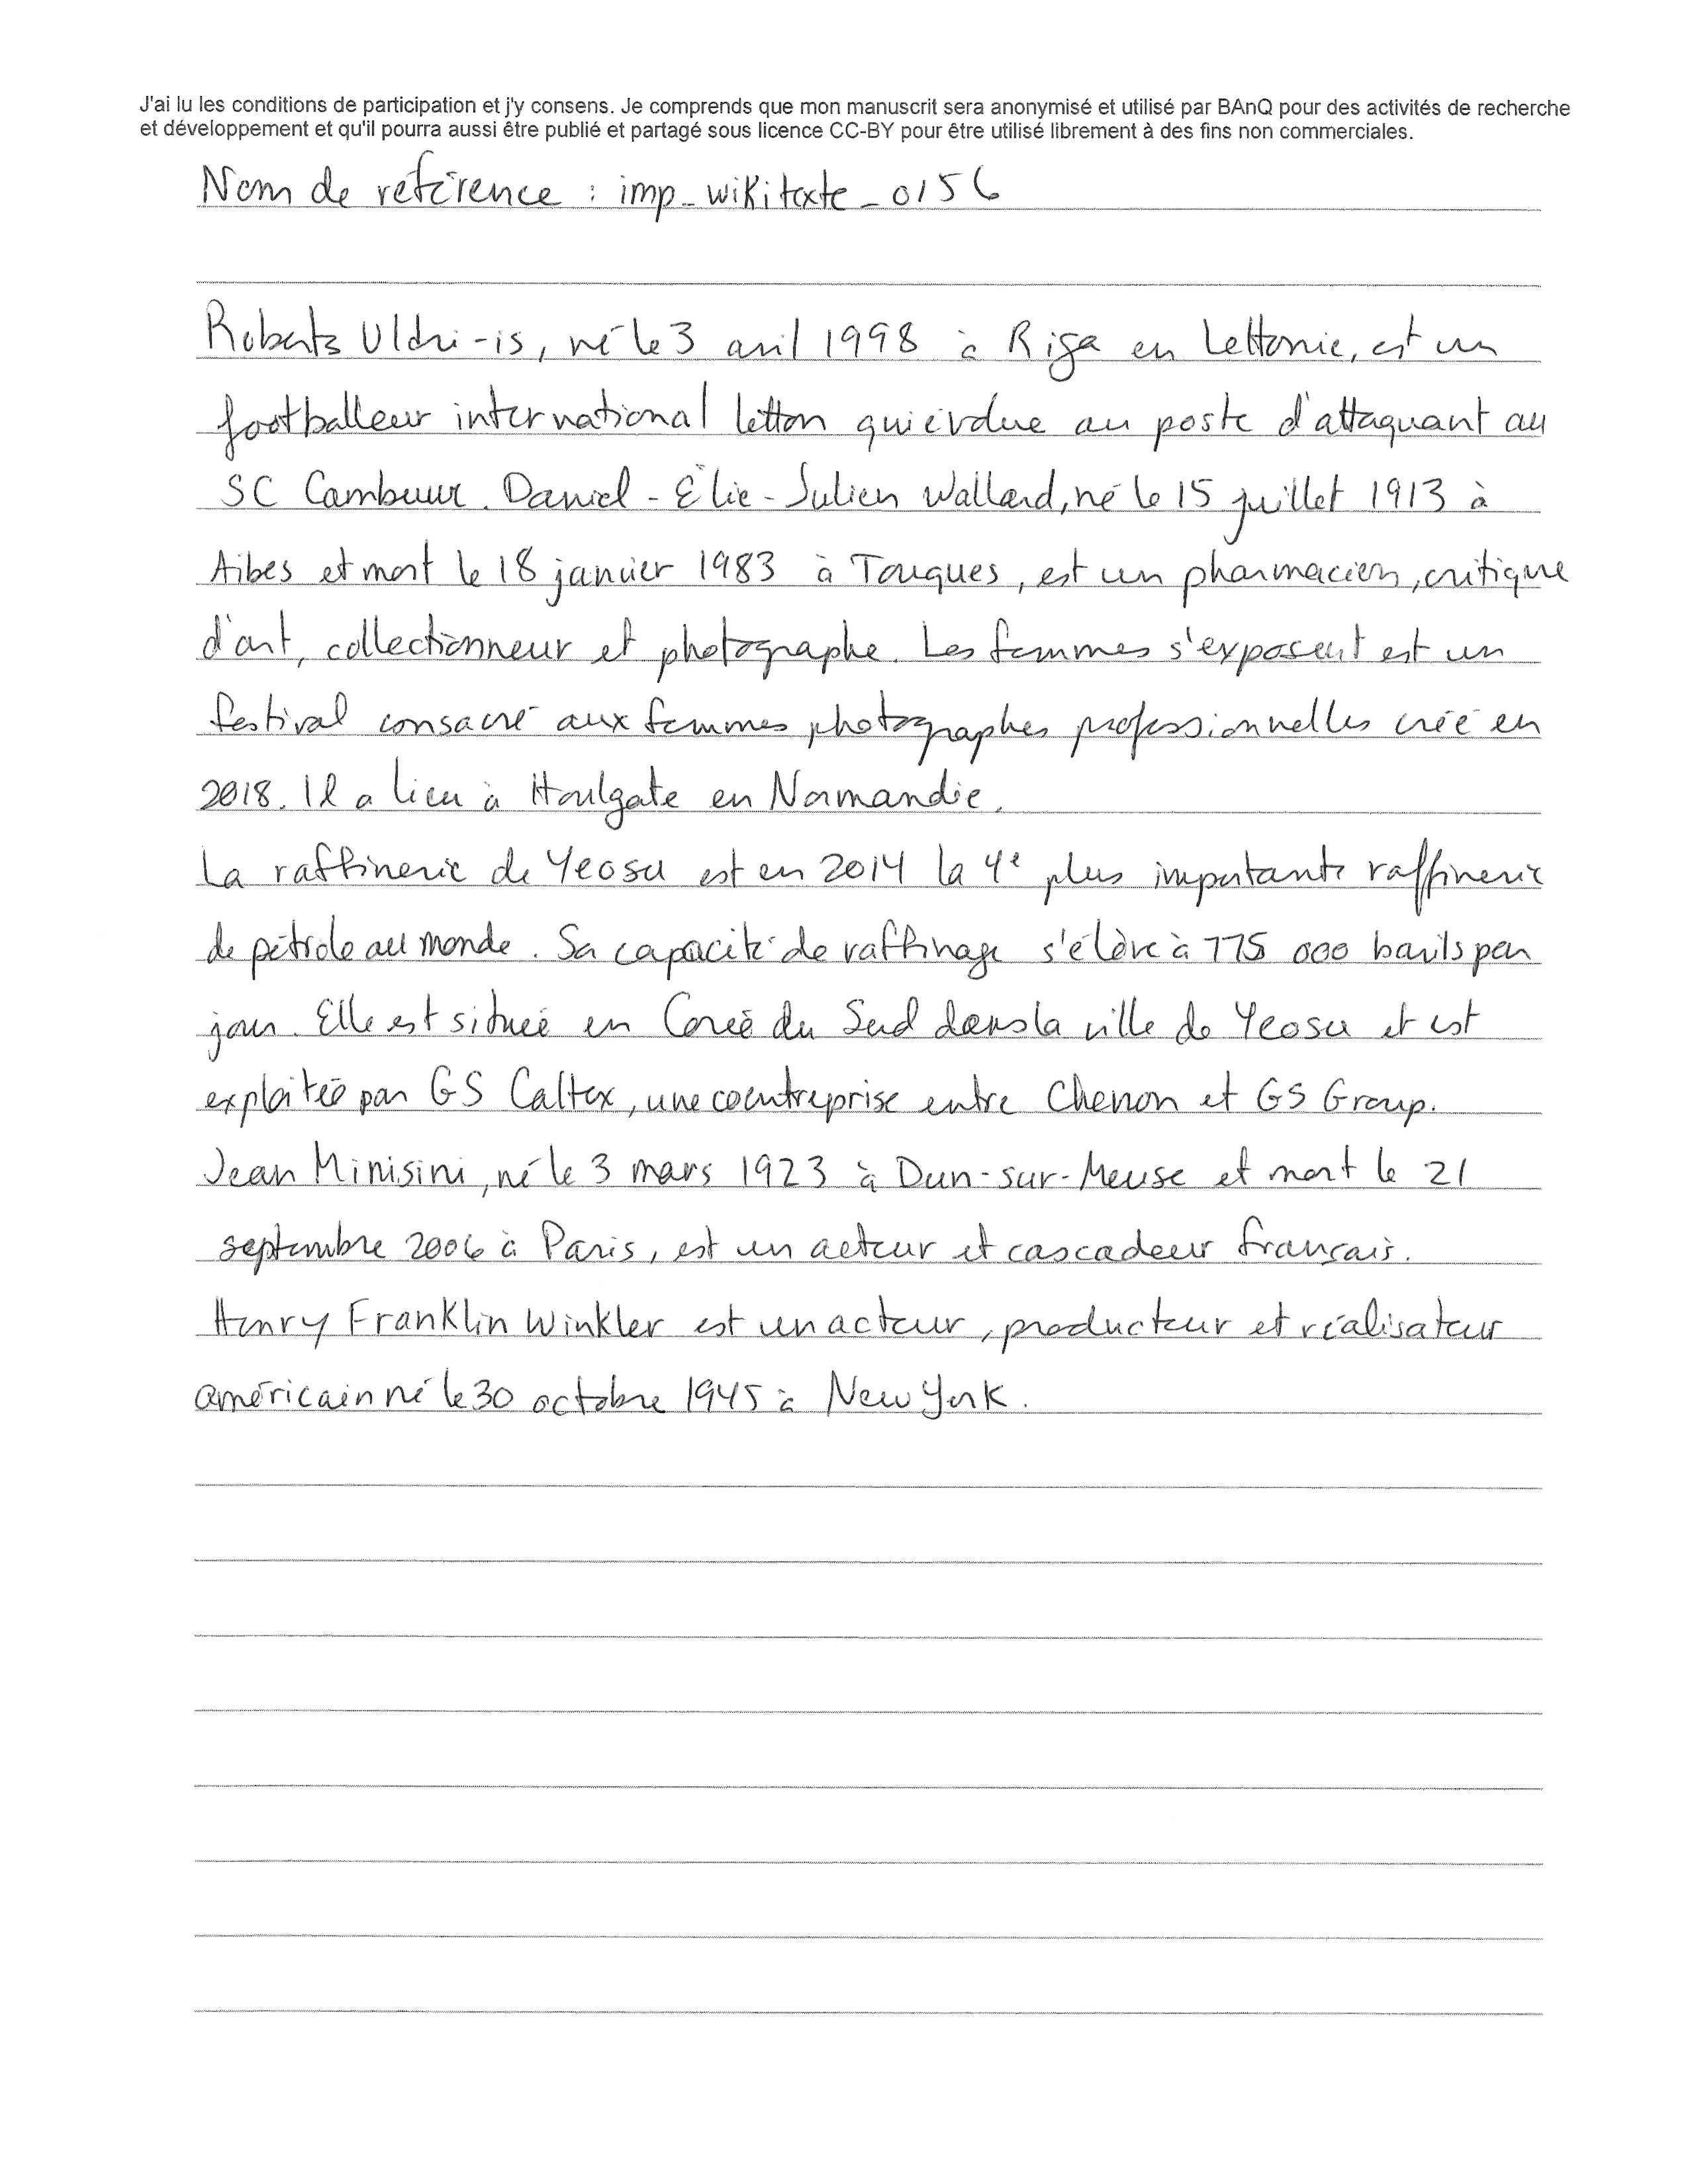 J'ai lu les conditions de participation et j'y consens. Je comprends que mon manuscrit sera anonymisé et utilisé par BAnQ pour des activités de recherche
et développement et qu'il pourra aussi être publié et partagé sous licence CC-BY pour être utilisé librement à des fins non commerciales.
Nom de référence : imp_wikitexte_0156
Roberts Uldri-is, né le 3 avril 1998 à Riga en Lettonie, est un
footballeur international letton qui évolue au poste d'attaquant au
SC Cambuur. Daniel-Élie-Julien Wallard, né le 15 juillet 1913 à
Aibes et mort le 18 janvier 1983 à Touques, est un pharmacien, critique
d'art, collectionneur et photographe. Les femmes s'exposent est un
festival consacré aux femmes photographes professionnelles créé en
2018. Il a lieu à Houlgate en Normandie.
La raffinerie de Yeosu est en 2014 la 4e plus importante raffinerie
de pétrole au monde. Sa capacité de raffinage s'élève à 775 000 barils par
jour. Elle est située en Corée du Sud dans la ville de Yeosu et est
exploitée par GS Caltex, une coentreprise entre Chevron et GS Group.
Jean Minisini, né le 3 mars 1923 à Dun-sur-Meuse et mort le 21
septembre 2006 à Paris, est un acteur et cascadeur français.
Henry Franklin Winkler est un acteur, producteur et réalisateur
américain né le 30 octobre 1945 à New York.